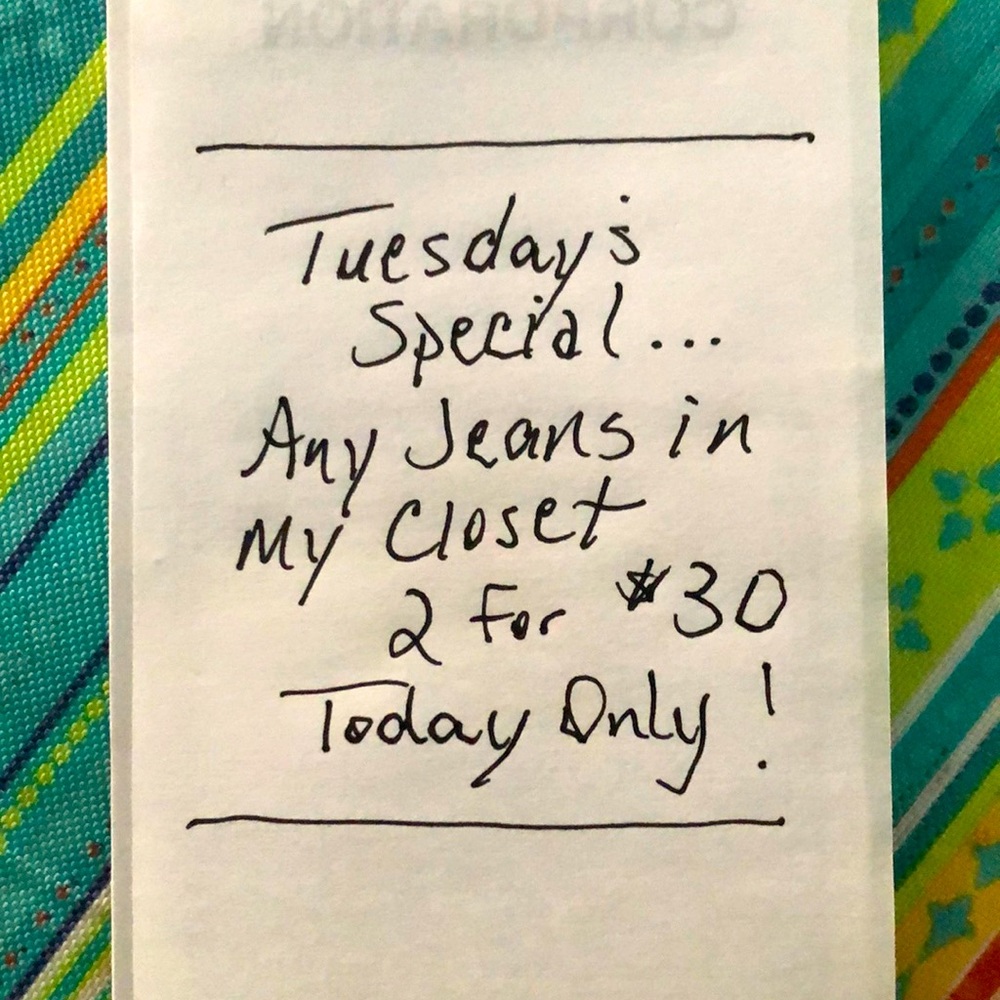 CORPORATION
Tuesday's
Special...
Any Jeans in
My Closet
2 For $30
Today Only!